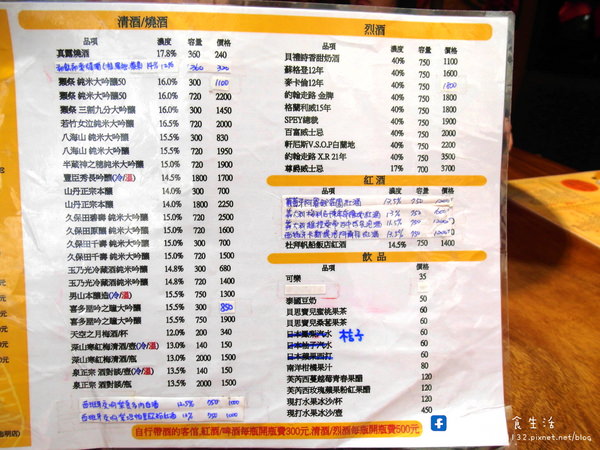 清酒/燒酒
品項 濃度 容量 價格
真露燒酒 17.8% 360 240
360
獺祭 純米大吟釀50 16.0% 300 1100
獺祭 純米大吟釀50 16.0% 720 2200
獺祭 三割九分大吟釀 16.0% 300 1450
若竹女泣純米大吟釀 16.5% 720 2000
八海山 純米大吟釀 15.5% 300 830
八海山 純米大吟釀 15.5% 720 1950
半藏神之穗純米大吟釀 15.0% 720 1950
豐臣秀長吟釀(冷/溫) 14.5% 1800 1700
山丹正宗本釀 14.0% 300 700
山丹正宗本釀 14.0% 1800 2250
久保田碧壽 純米大吟釀 15.0% 720 2500
久保田原釀 純米大吟釀 15.0% 720 1600
久保田千壽 純米大吟釀 15.5% 300 700
久保田千壽 純米大吟釀 15.5% 720 1500
玉乃光冷藏酒純米吟釀 14.8% 300 680
玉乃光冷藏酒純米吟釀 14.8% 720 1250
男山本釀造(冷/溫) 15.5% 750 1300
喜多屋吟之瓏大吟釀 15.5% 300 850
喜多屋吟之瓏大吟釀 15.5% 750 1900
天空之月梅酒/杯 12.0% 200 340
深山寒紅梅清酒/壺(冷/溫) 13.0% 140 150
深山寒紅梅清酒/瓶 13.0% 2000 1500
泉正宗 酒對談/壺(冷/溫) 15.5% 140 150
泉正宗 酒對談/瓶 15.5% 2000 1500
12.5% 750 1000
12% 750 1000
烈酒
品項 濃度 容量 價格
貝禮詩香甜奶酒 40% 750 1100
蘇格登12年 40% 750 1600
麥卡倫12年 40% 750 1800
約翰走路 金牌 40% 750 1800
格蘭利威15年 40% 750 1800
SPEY總裁 40% 750 1900
百富威士忌 40% 750 2000
軒尼斯V.S.O.P白蘭地 40% 750 2200
約翰走路 X.R 21年 40% 750 3500
尊爵威士忌 17% 700 3700
紅酒
品項 濃度 容量 價格
杜拜帆船飯店紅酒 14.5% 750 1400
飲品
品項 價格
可樂 35
泰國豆奶 50
貝思寶兒蜜桃果茶 60
貝思寶兒桑葚果茶 60
日本鳳梨汽水 桔子 60
日本柚子汽水 60
日本蘋果西打 60
南洋柑橘果汁 60
芙芮西蔓越莓青春果醋 60
芙芮西玫瑰蘋果粉紅果醋 60
現打水果冰沙/杯 120
現打水果冰沙/壺 450
自行帶酒的客倌,紅酒/啤酒每瓶開瓶費300元,清酒/烈酒每瓶開瓶費500元
食生活
132.pixnet.net/blog